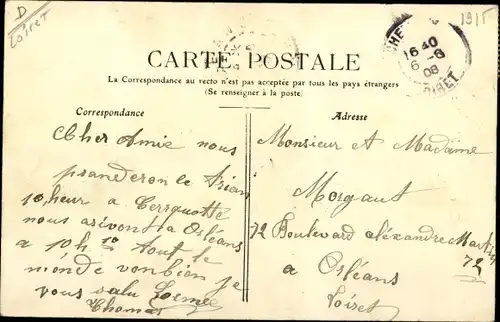 D
Loiret
1915
CARTE POSTALE
La Correspondance au recto n'est pas acceptée par tous les pays étrangers
(Se renseigner à la poste)
16 40
6 - 8
08
LOIRET
Correspondance
Cher Amie nous
pranderon le Trian
10 heur a Cercquotte
nous arévont a Orléans
a 10h 10 Tout le
monde von bien je
vous salu
Thomas
Adresse
Monsieur et Madame
Morgaut
72 Boulevard aléxandre Martin
72
a Orléans
Loiret